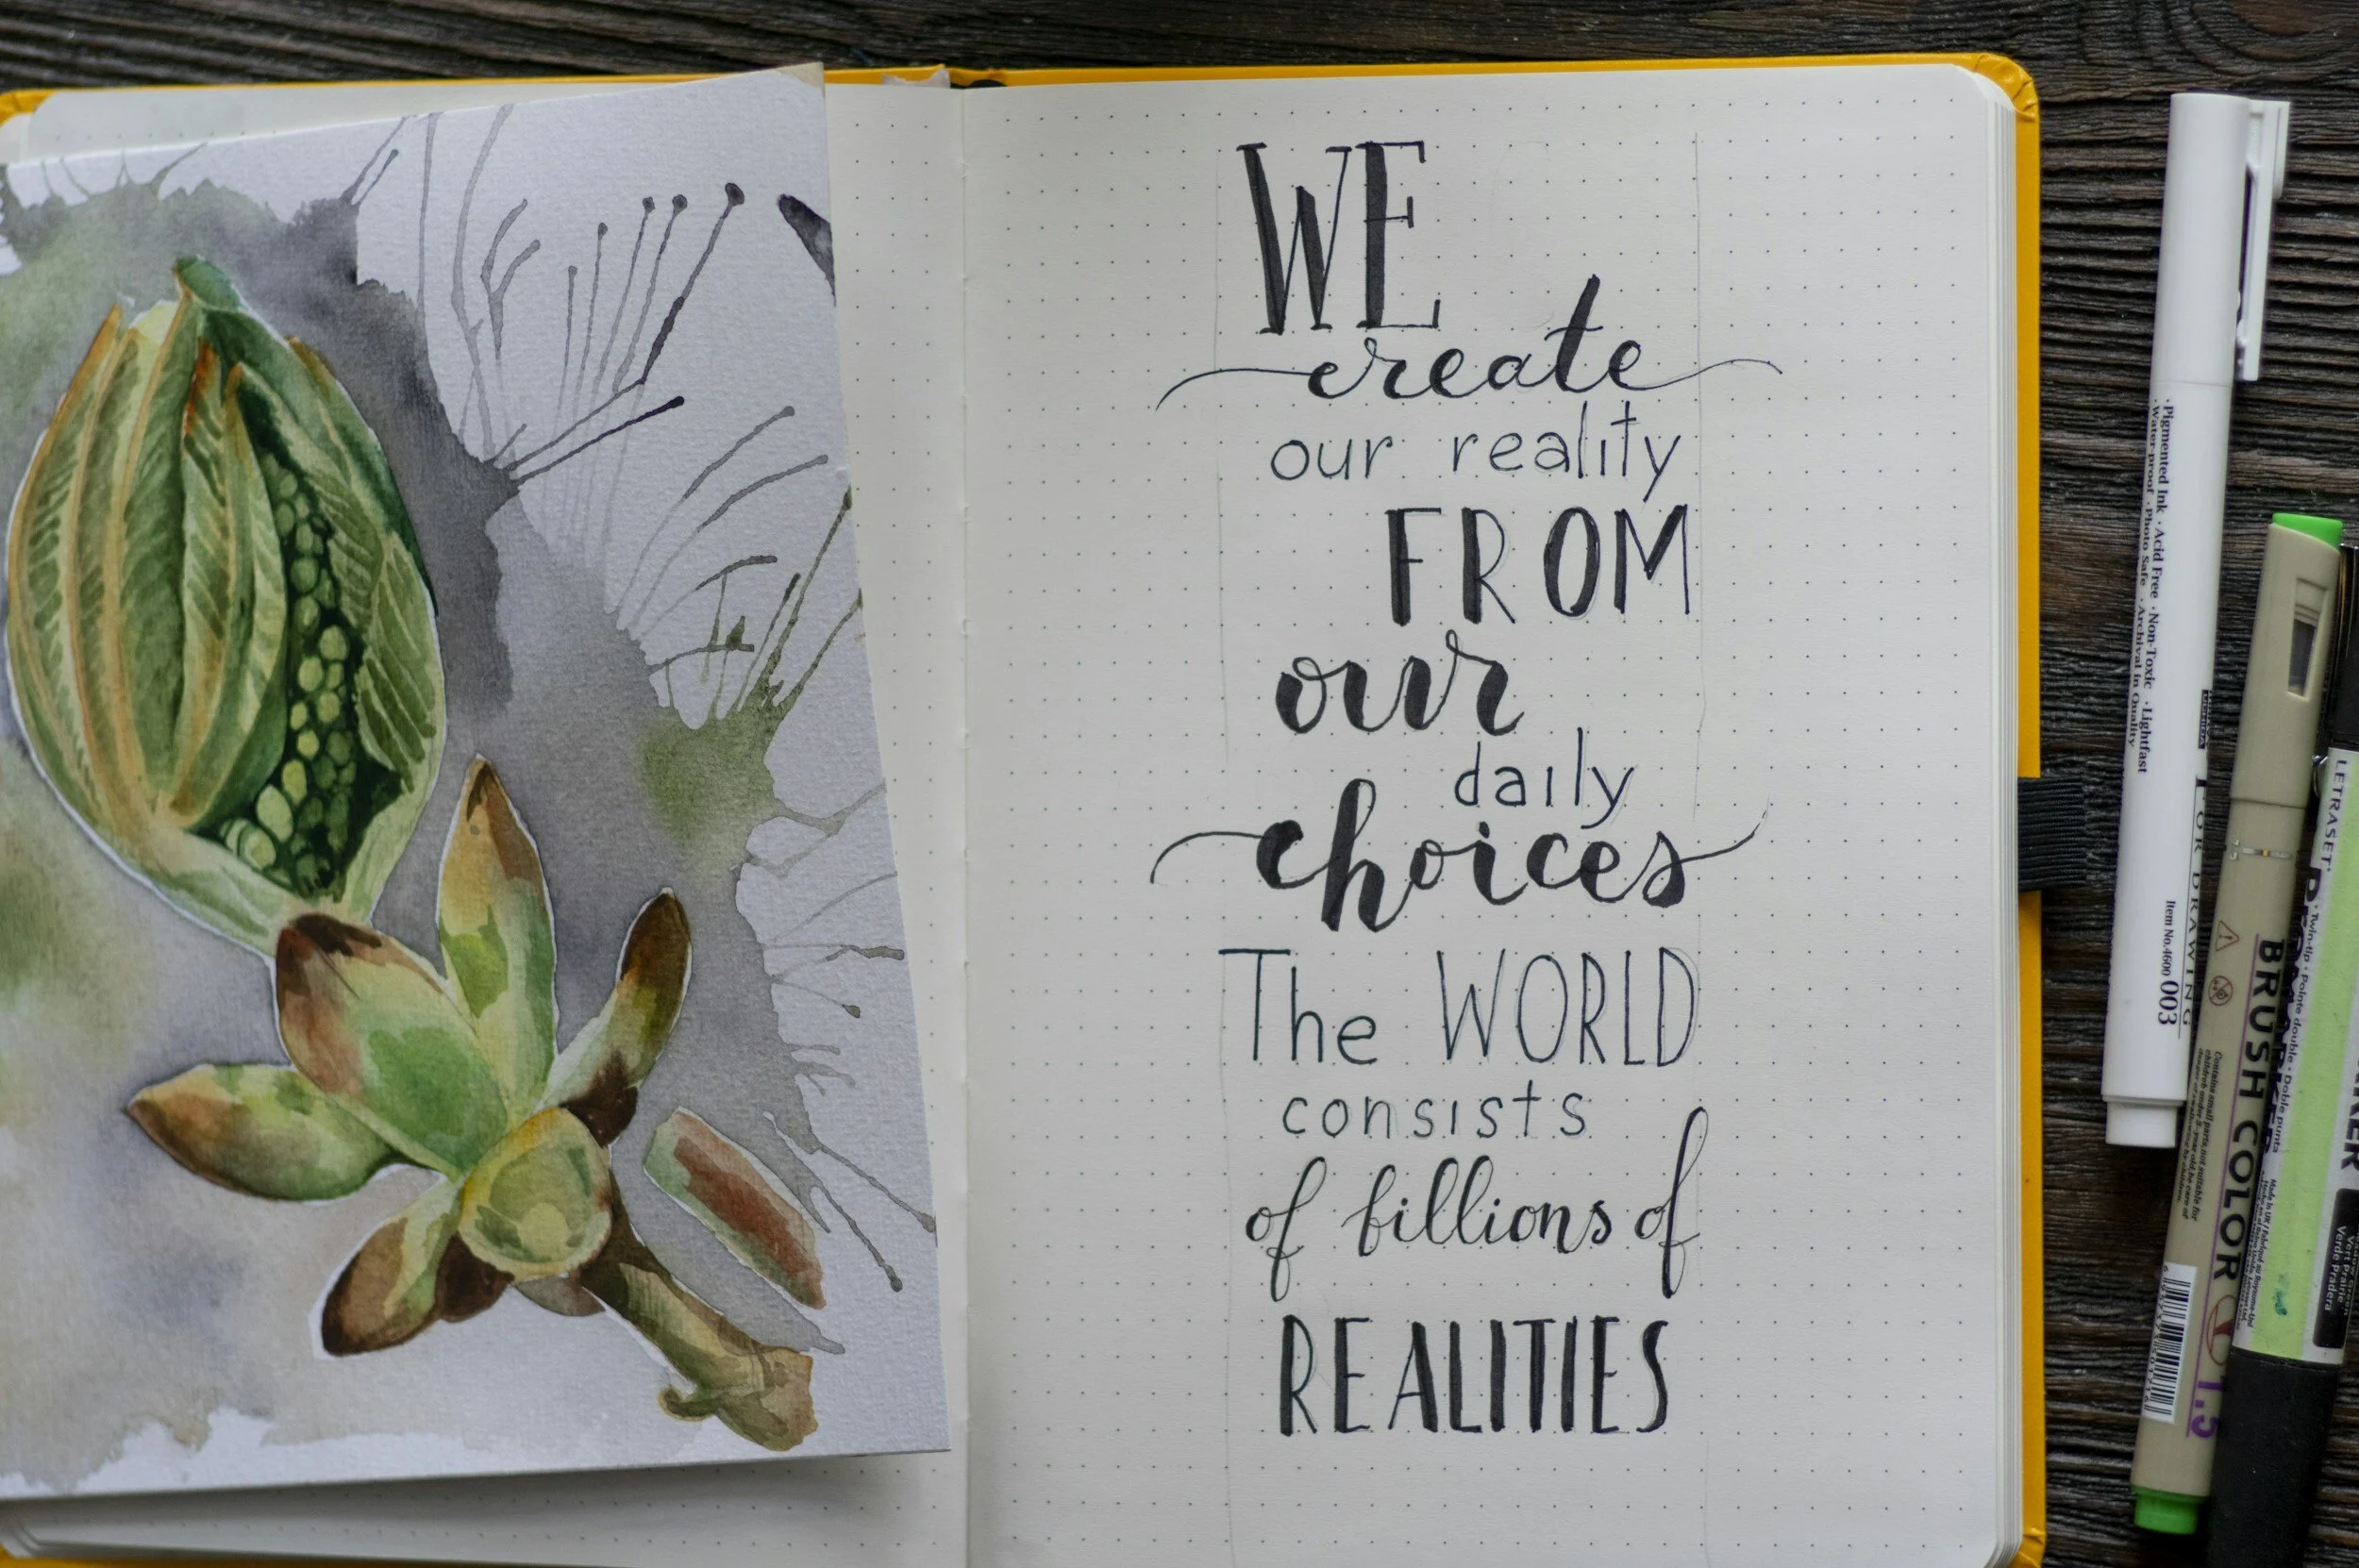 WE
create
our reality
FROM
our
daily
choices
The WORLD
consists
of billions of
REALITIES
· Pigmented Ink · Acid Free · Non-Toxic · Lightfast
· Water-proof · Photo Safe · Archival in Quality
FOR DRAWING
Item No.4600 003
BRUSH COLOR
1.5
LETRASET
Twin-tip · pointe double · Doble punta
Vert Prairie
Verde Pradera